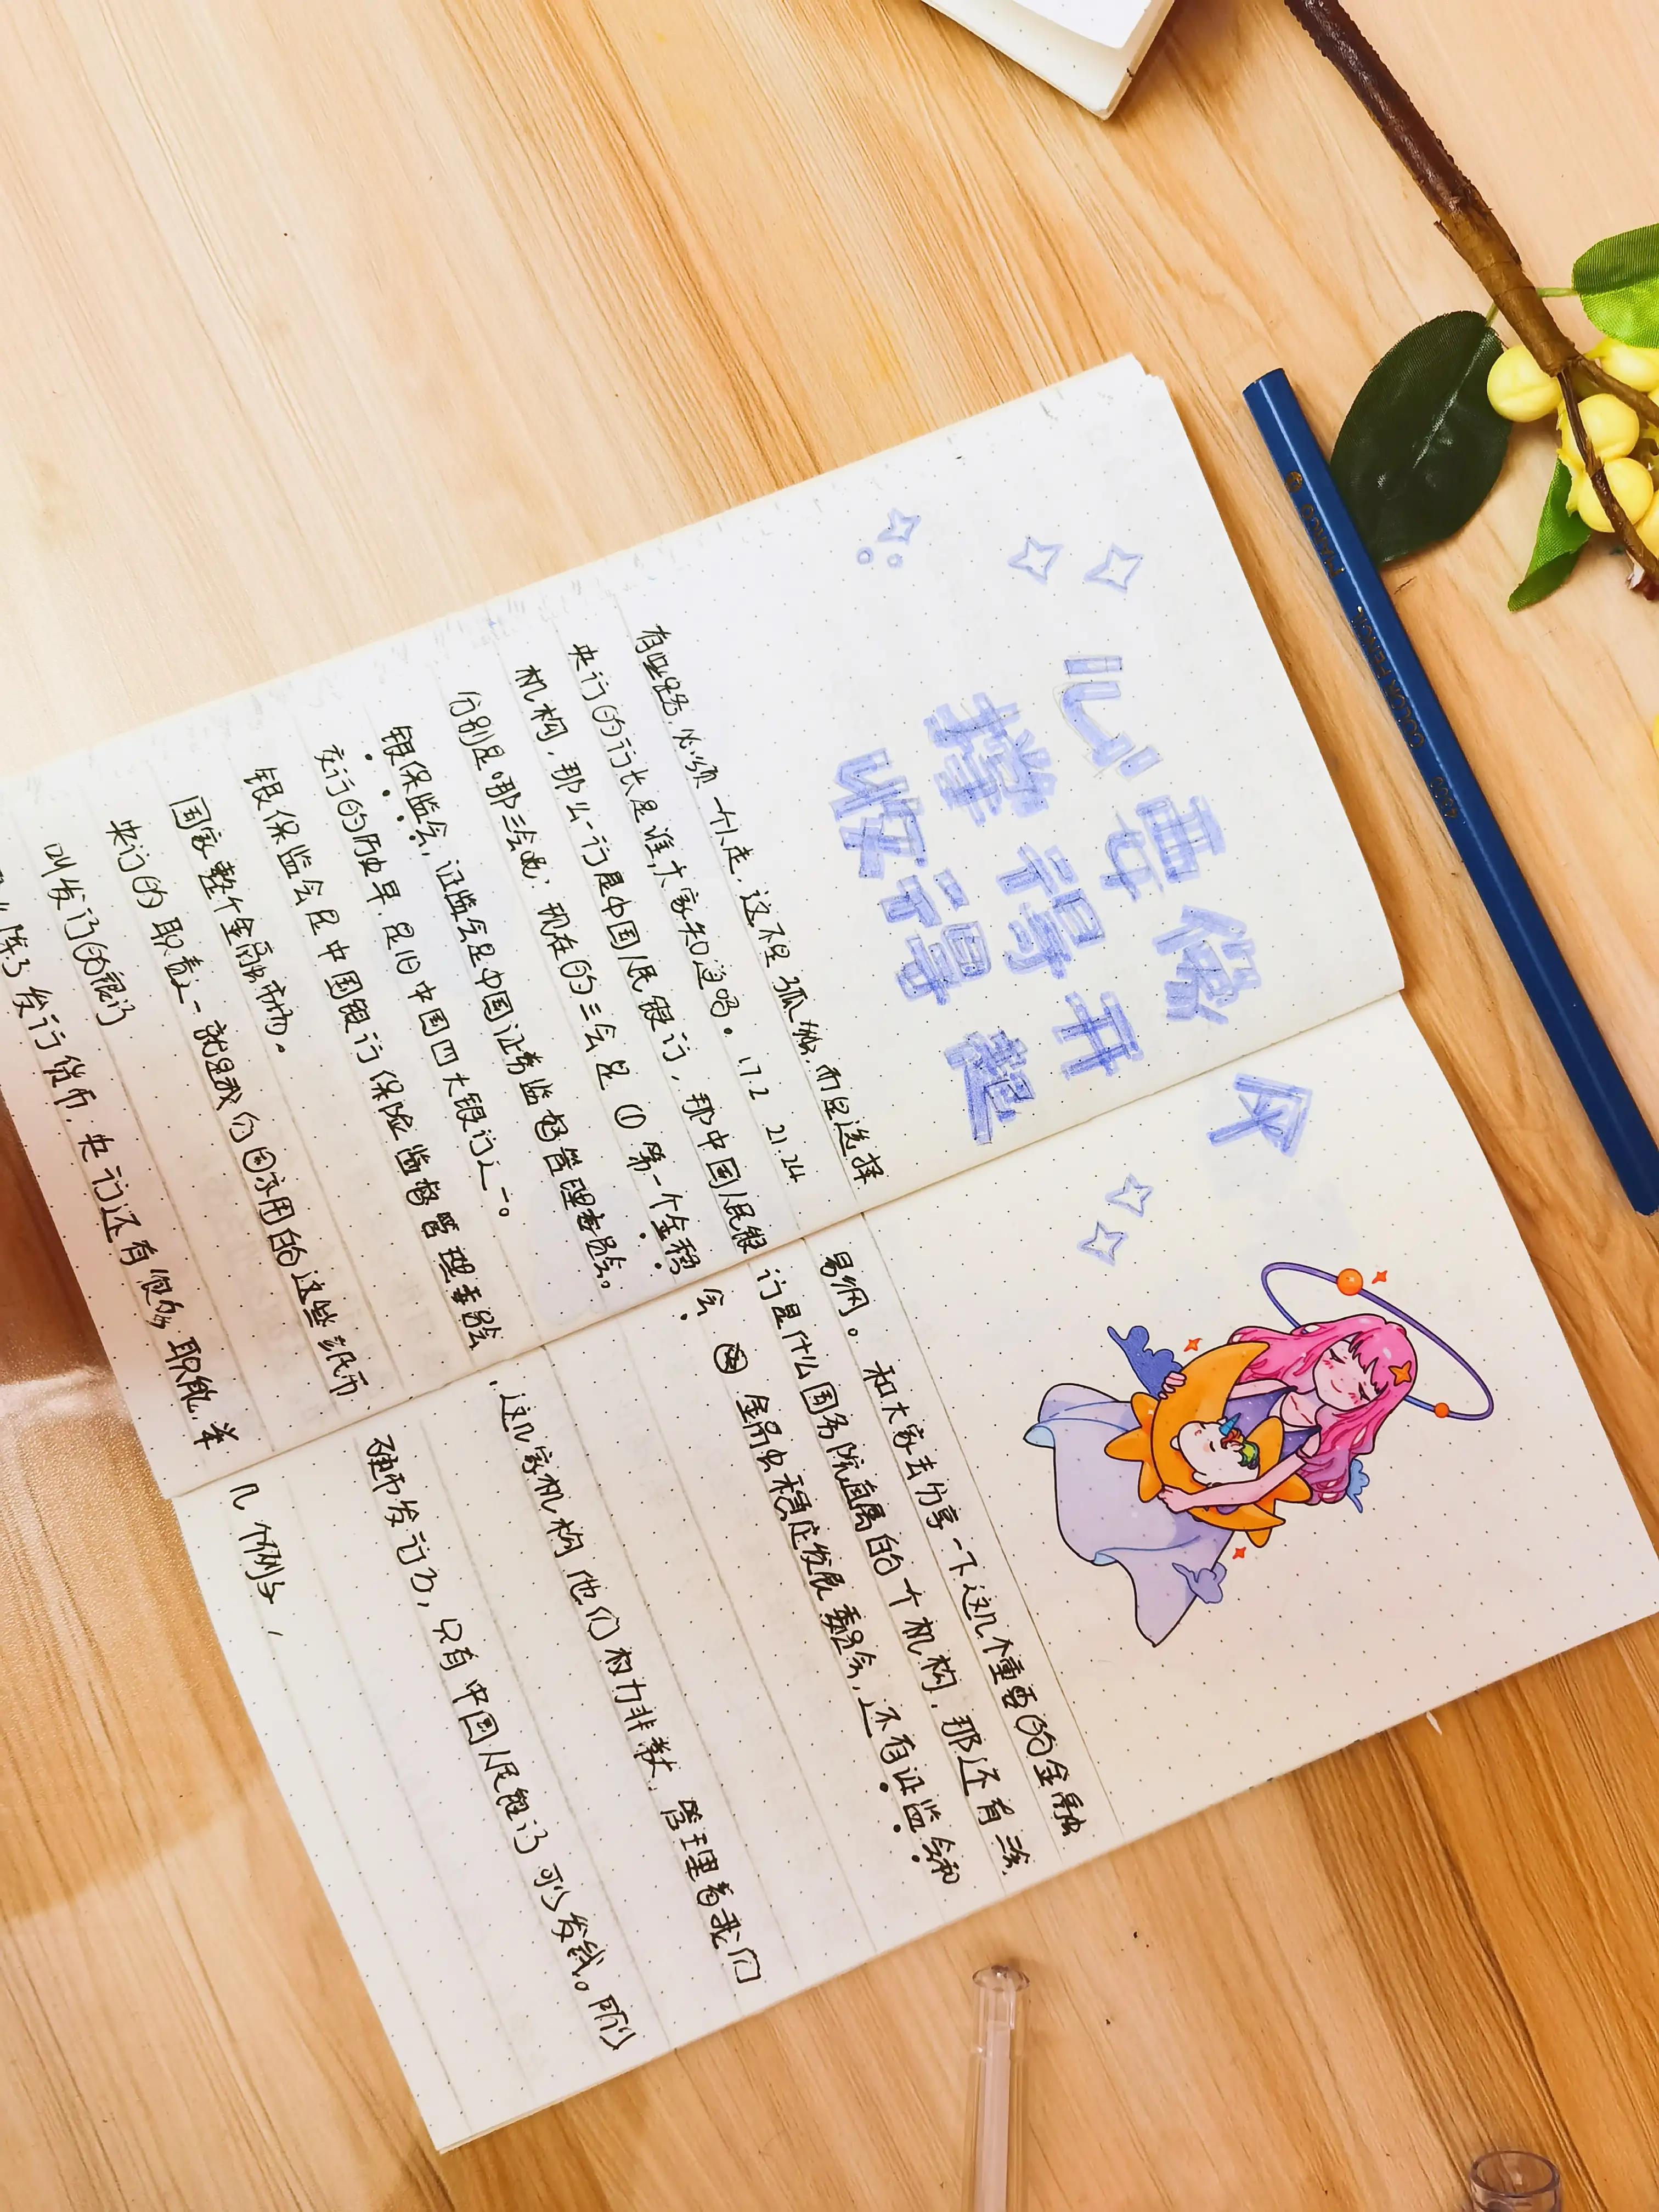 心要像伞
撑得开
收得起
有些路,必须一个人走,这不是孤独,而是选择
央行的行长是谁,大家知道吗。 17.2 21.24 易纲。 和大家去分享一下这几个重要的金融
机构,那么一行是中国人民银行,那中国人民银行是什么国务院直属的一个机构,那还有三会
分别是哪三会呢:现在的三会是 ① 第一个金稳会 金融稳定发展委员会,还有证监会和
银保监会,证监会是中国证券监督管理委员会。
交行的历史早,是旧中国四大银行之一。
银保监会是中国银行保险监督管理委员会 .这几家机构他们权力非常大,管理着我们
国家整个金融市场。
央行的职责之一就是我们日常用的这些纸币 硬币发行了,只有中国人民银行可以发钱。所以
叫发行的银行
除了发行货币,央行还有很多职能,举几个例子,
MARCO COLOR PENCIL